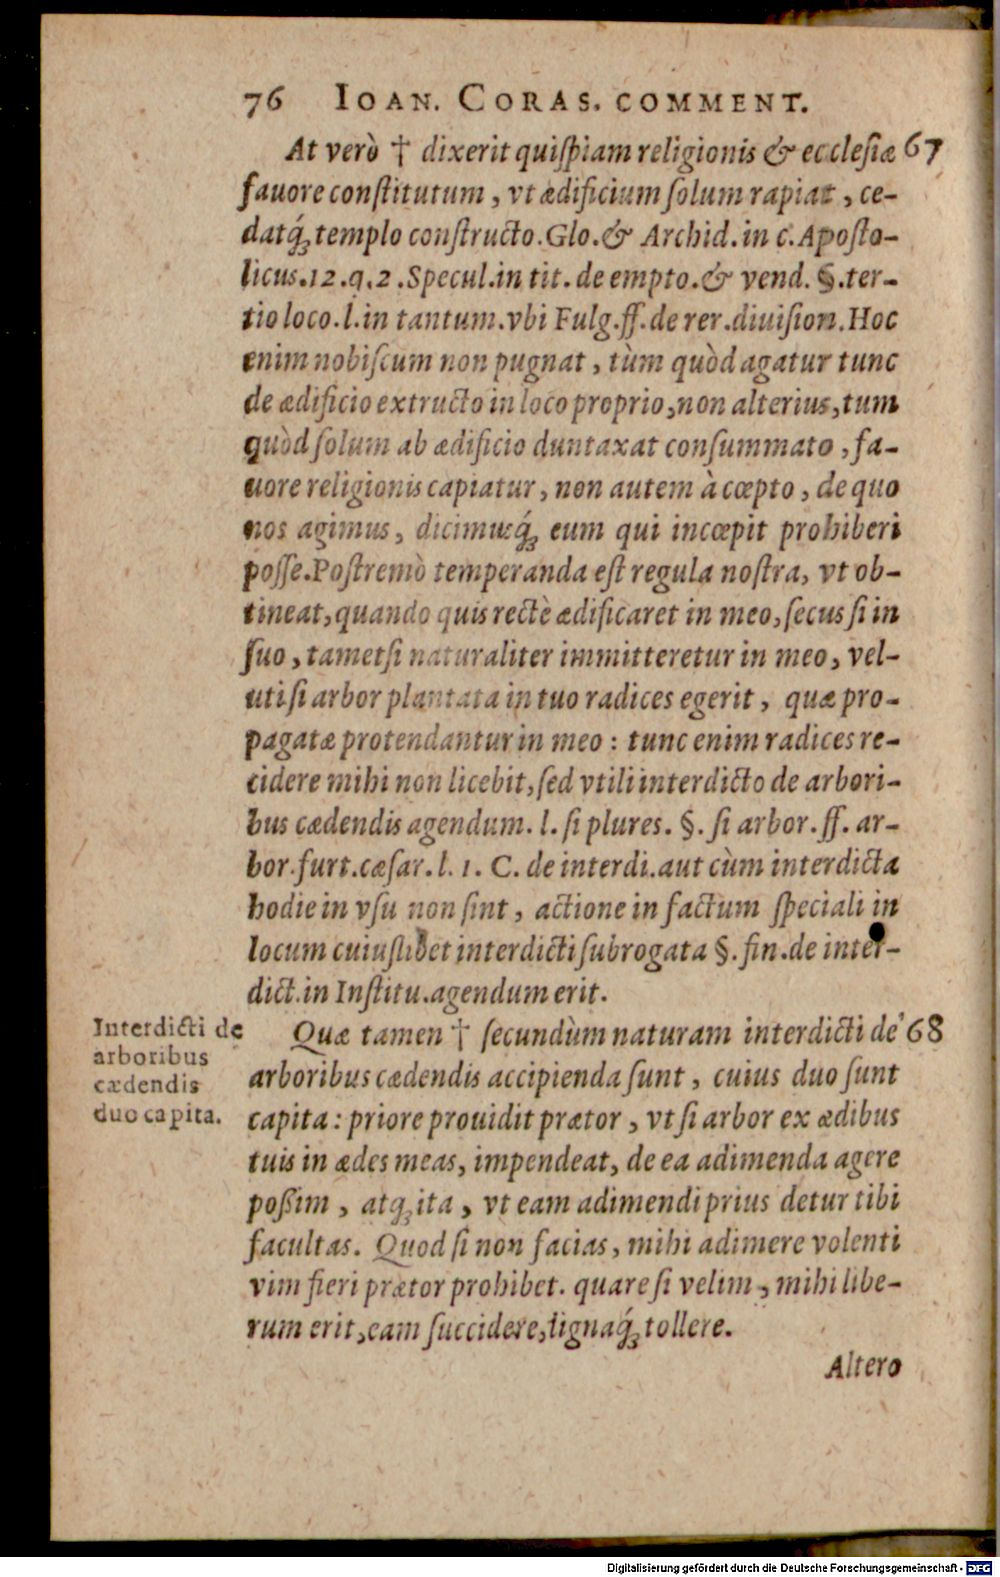 76 IOAN. CORAS. COMMENT.
At verò † dixerit quiſpiam religionis & eccleſiæ 67
fauore conſtitutum, vt ædificium ſolum rapiat, ce-
datq́ꝫ templo conſtructo. Glo. & Archid. in c. Apoſto-
licus. 12. q. 2. Specul. in tit. de empto. & vend. §. ter-
tio loco. l. in tantum. vbi Fulg. ff. de rer. diuiſion. Hoc
enim nobiſcum non pugnat, tùm quòd agatur tunc
de ædificio extructo in loco proprio, non alterius, tum
quòd ſolum ab ædificio duntaxat conſummato, fa-
uore religionis capiatur, non autem à cœpto, de quo
nos agimus, dicimusq́ꝫ eum qui incœpit prohiberi
poſſe. Poſtremò temperanda eſt regula noſtra, vt ob-
tineat, quando quis rectè ædificaret in meo, ſecus ſi in
ſuo, tametſi naturaliter immitteretur in meo, vel-
uti ſi arbor plantata in tuo radices egerit, quæ pro-
pagatæ protendantur in meo: tunc enim radices re-
cidere mihi non licebit, ſed vtili interdicto de arbori-
bus cædendis agendum. l. ſi plures. §. ſi arbor. ff. ar-
bor. furt. cæſar. l. 1. C. de interdi. aut cùm interdicta
hodie in vſu non ſint, actione in factum ſpeciali in
locum cuiuſlibet interdicti ſubrogata §. fin. de inter-
dict. in Inſtitu. agendum erit.
Interdicti de
arboribus
cædendis
duo capita.
Quæ tamen † ſecundùm naturam interdicti de 68
arboribus cædendis accipienda ſunt, cuius duo ſunt
capita: priore prouidit prætor, vt ſi arbor ex ædibus
tuis in ædes meas, impendeat, de ea adimenda agere
poßim, atqꝫ ita, vt eam adimendi prius detur tibi
facultas. Quod ſi non facias, mihi adimere volenti
vim fieri prætor prohibet. quare ſi velim, mihi libe-
rum erit, eam ſuccidere, lignaq́ꝫ tollere.
Altero
Digitalisierung gefördert durch die Deutsche Forschungsgemeinschaft - DFG